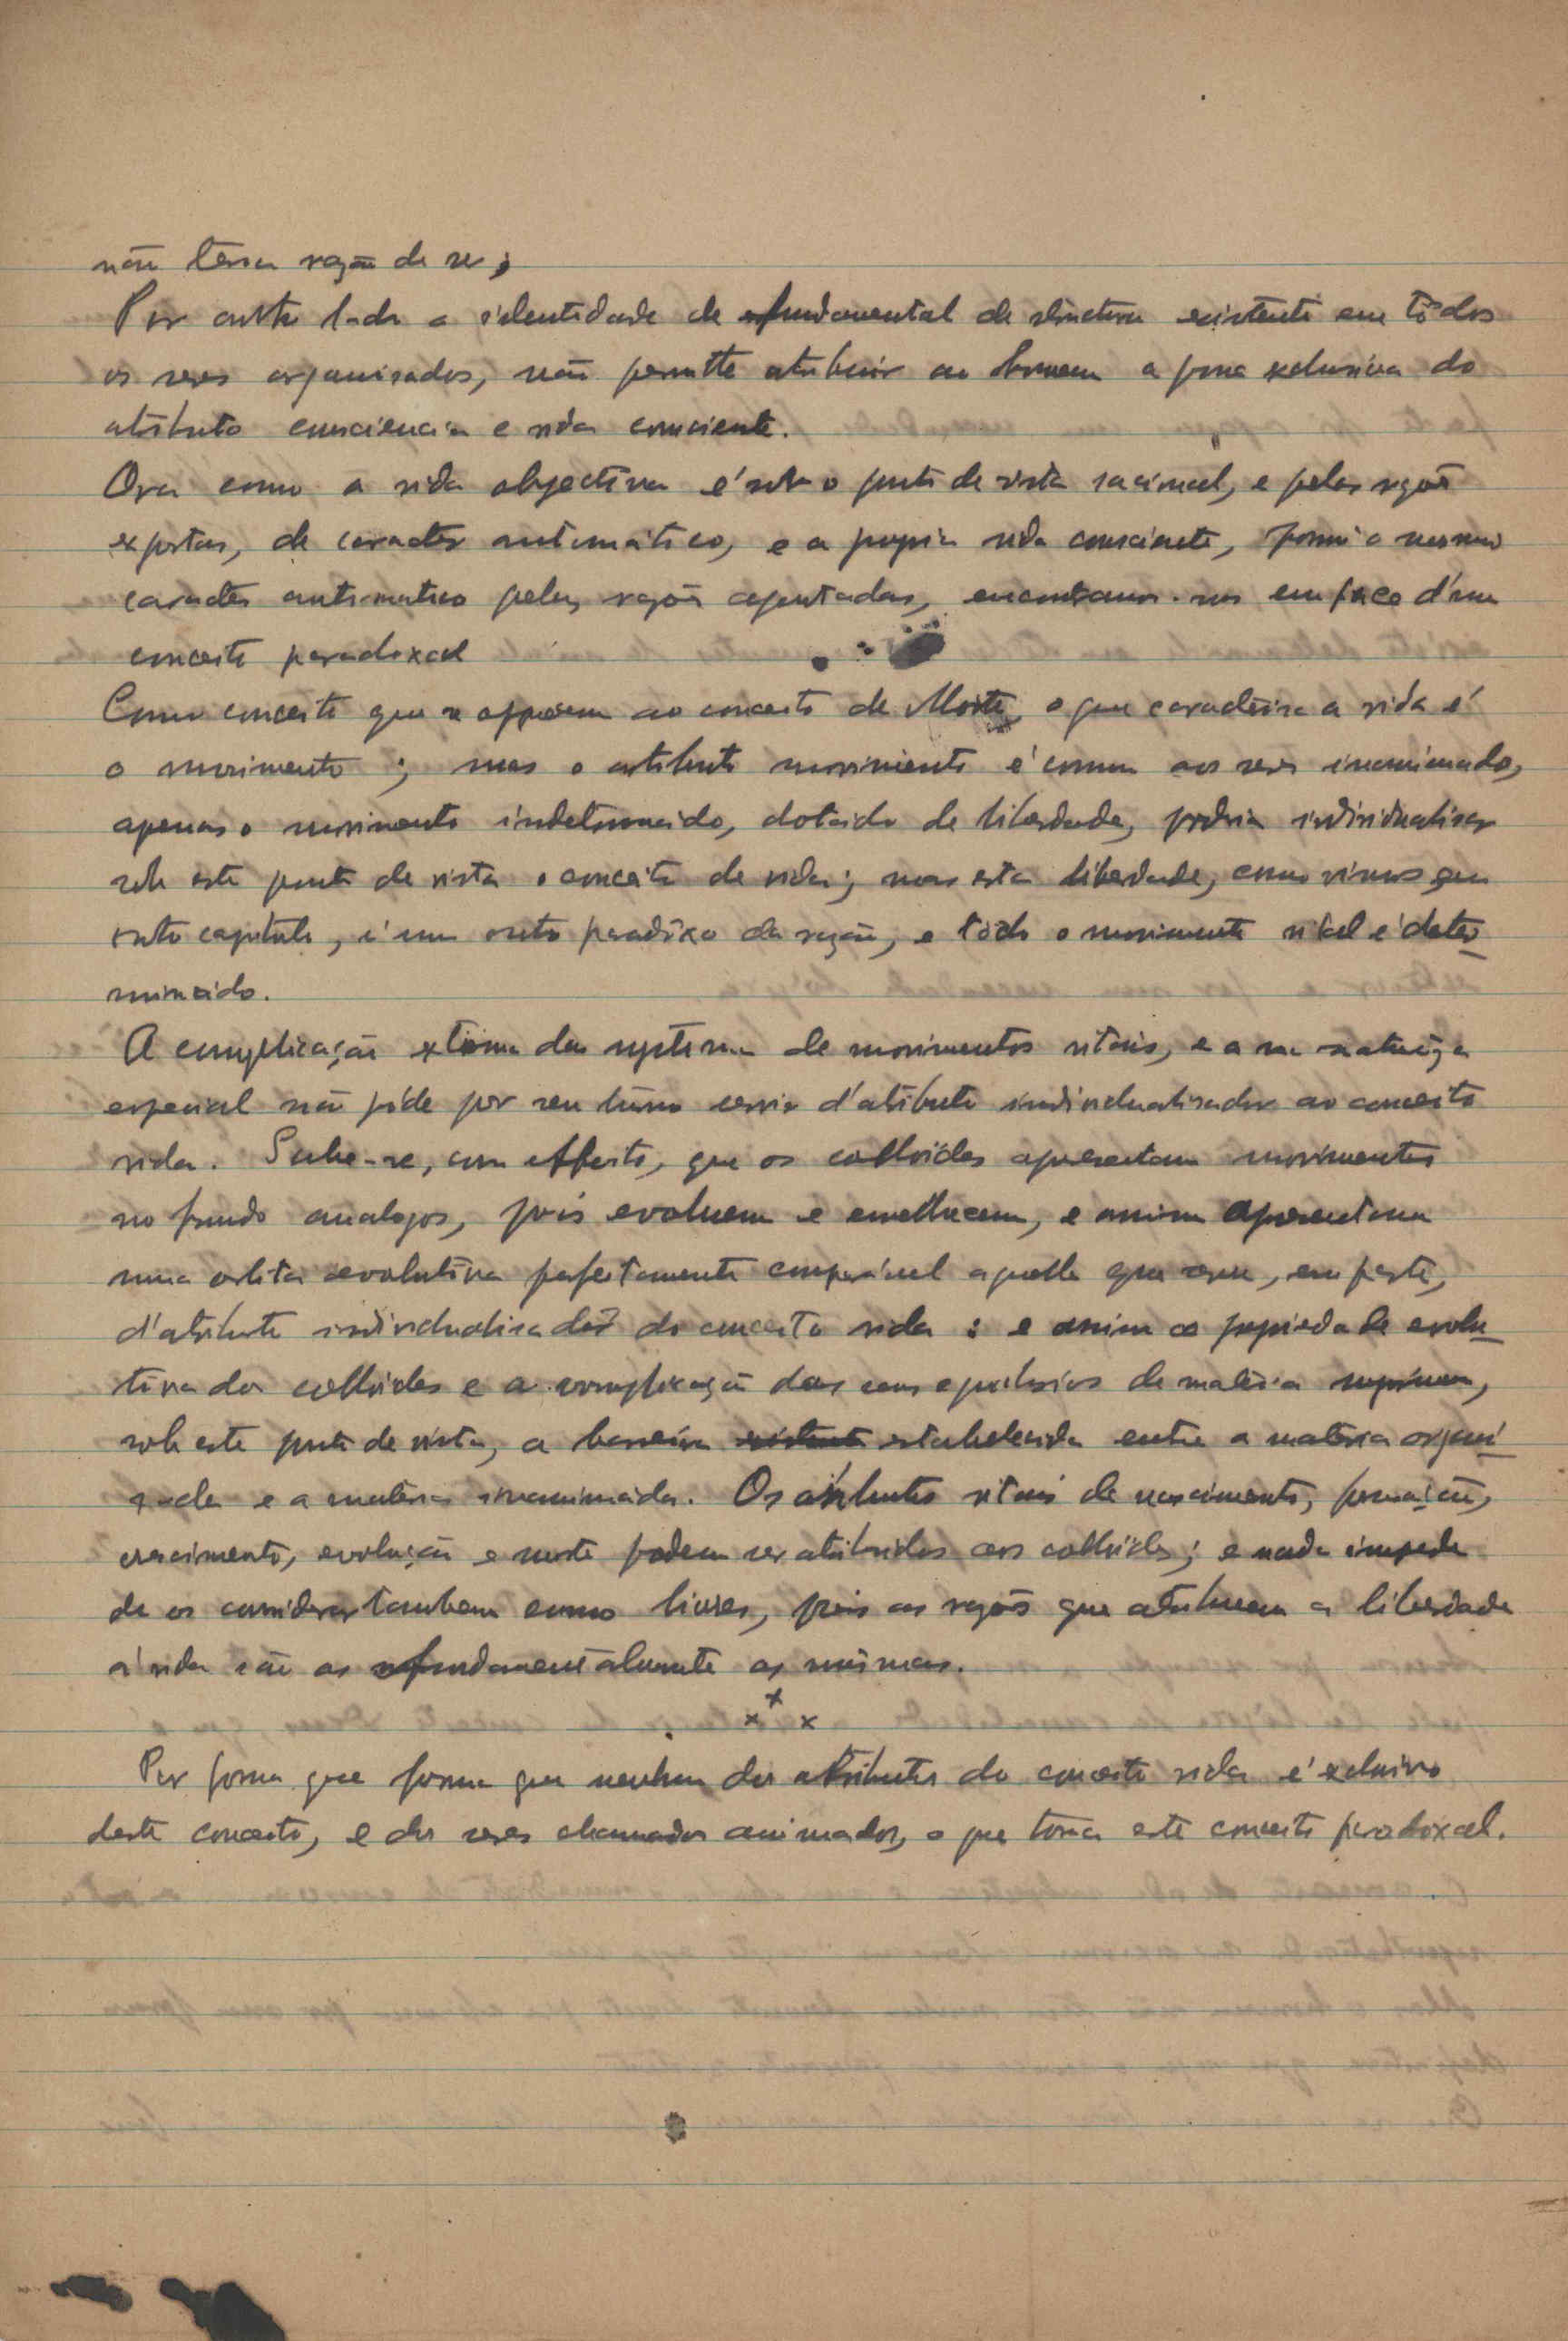 não teria razão de ser;
Por outro lado a identidade de fundamental de structura existente em tôdos
os seres organisados, não permitte atribuir ao homem a posse exclusiva do
atributo consciencia e vida consciente.
Ora como a vida objectiva é sob o ponto de vista racional, e pelas razões
expostas, de caracter automático, e a propria vida consciente, possui o mesmo
caracter automatico pelas razões apontadas, encontramo-nos em face d'um
conceito paradoxal
Como conceito que se oppõem ao conceito de Morte, o que caracterisa a vida é
o movimento; mas o atributo movimento é comum aos seres inanimados,
apenas o movimento indeterminado, dotado de liberdade, podria individualisar
sob este ponto de vista o conceito de vida; mas esta liberdade, como vimos em
outro capitulo, é um outro paradoxo da razão, e tôdo o movimento vital é deter
minado.
A complicação extrema do systema de movimentos vitais, e a sua natureza
especial não póde por seu turno servir d'atributo individualisador ao conceito
vida. Sabe-se, com effeito, que os colloides apresentam movimentos
no fundo analogos, pois evoluem e envelhecem, e assim apresentam
uma orbita evolutiva perfeitamente comparavel aquella que serve, em parte,
d'atributo individualisador do conceito vida: e assim a propriedade evolu
tiva dos colloides e a complicação dos seus equilibrios de matéria suprimem,
sob este ponto de vista, a barreira existente estabelecida entre a matéria organi
zada e a matéria inanimada. Os atributos vitais de nascimento, formação,
crescimento, evolução e morte podem ser atribuidos aos colloides; e nada impede
de os considerar tambem como livres, pois as razões que atribuem a liberdade
á vida são as fundamentalmente as mesmas.
x x x
Por forma que forma que nenhum dos atributos do conceito vida é exclusivo
deste conceito, e dos seres chamados animados, o que torna este conceito paradoxal.